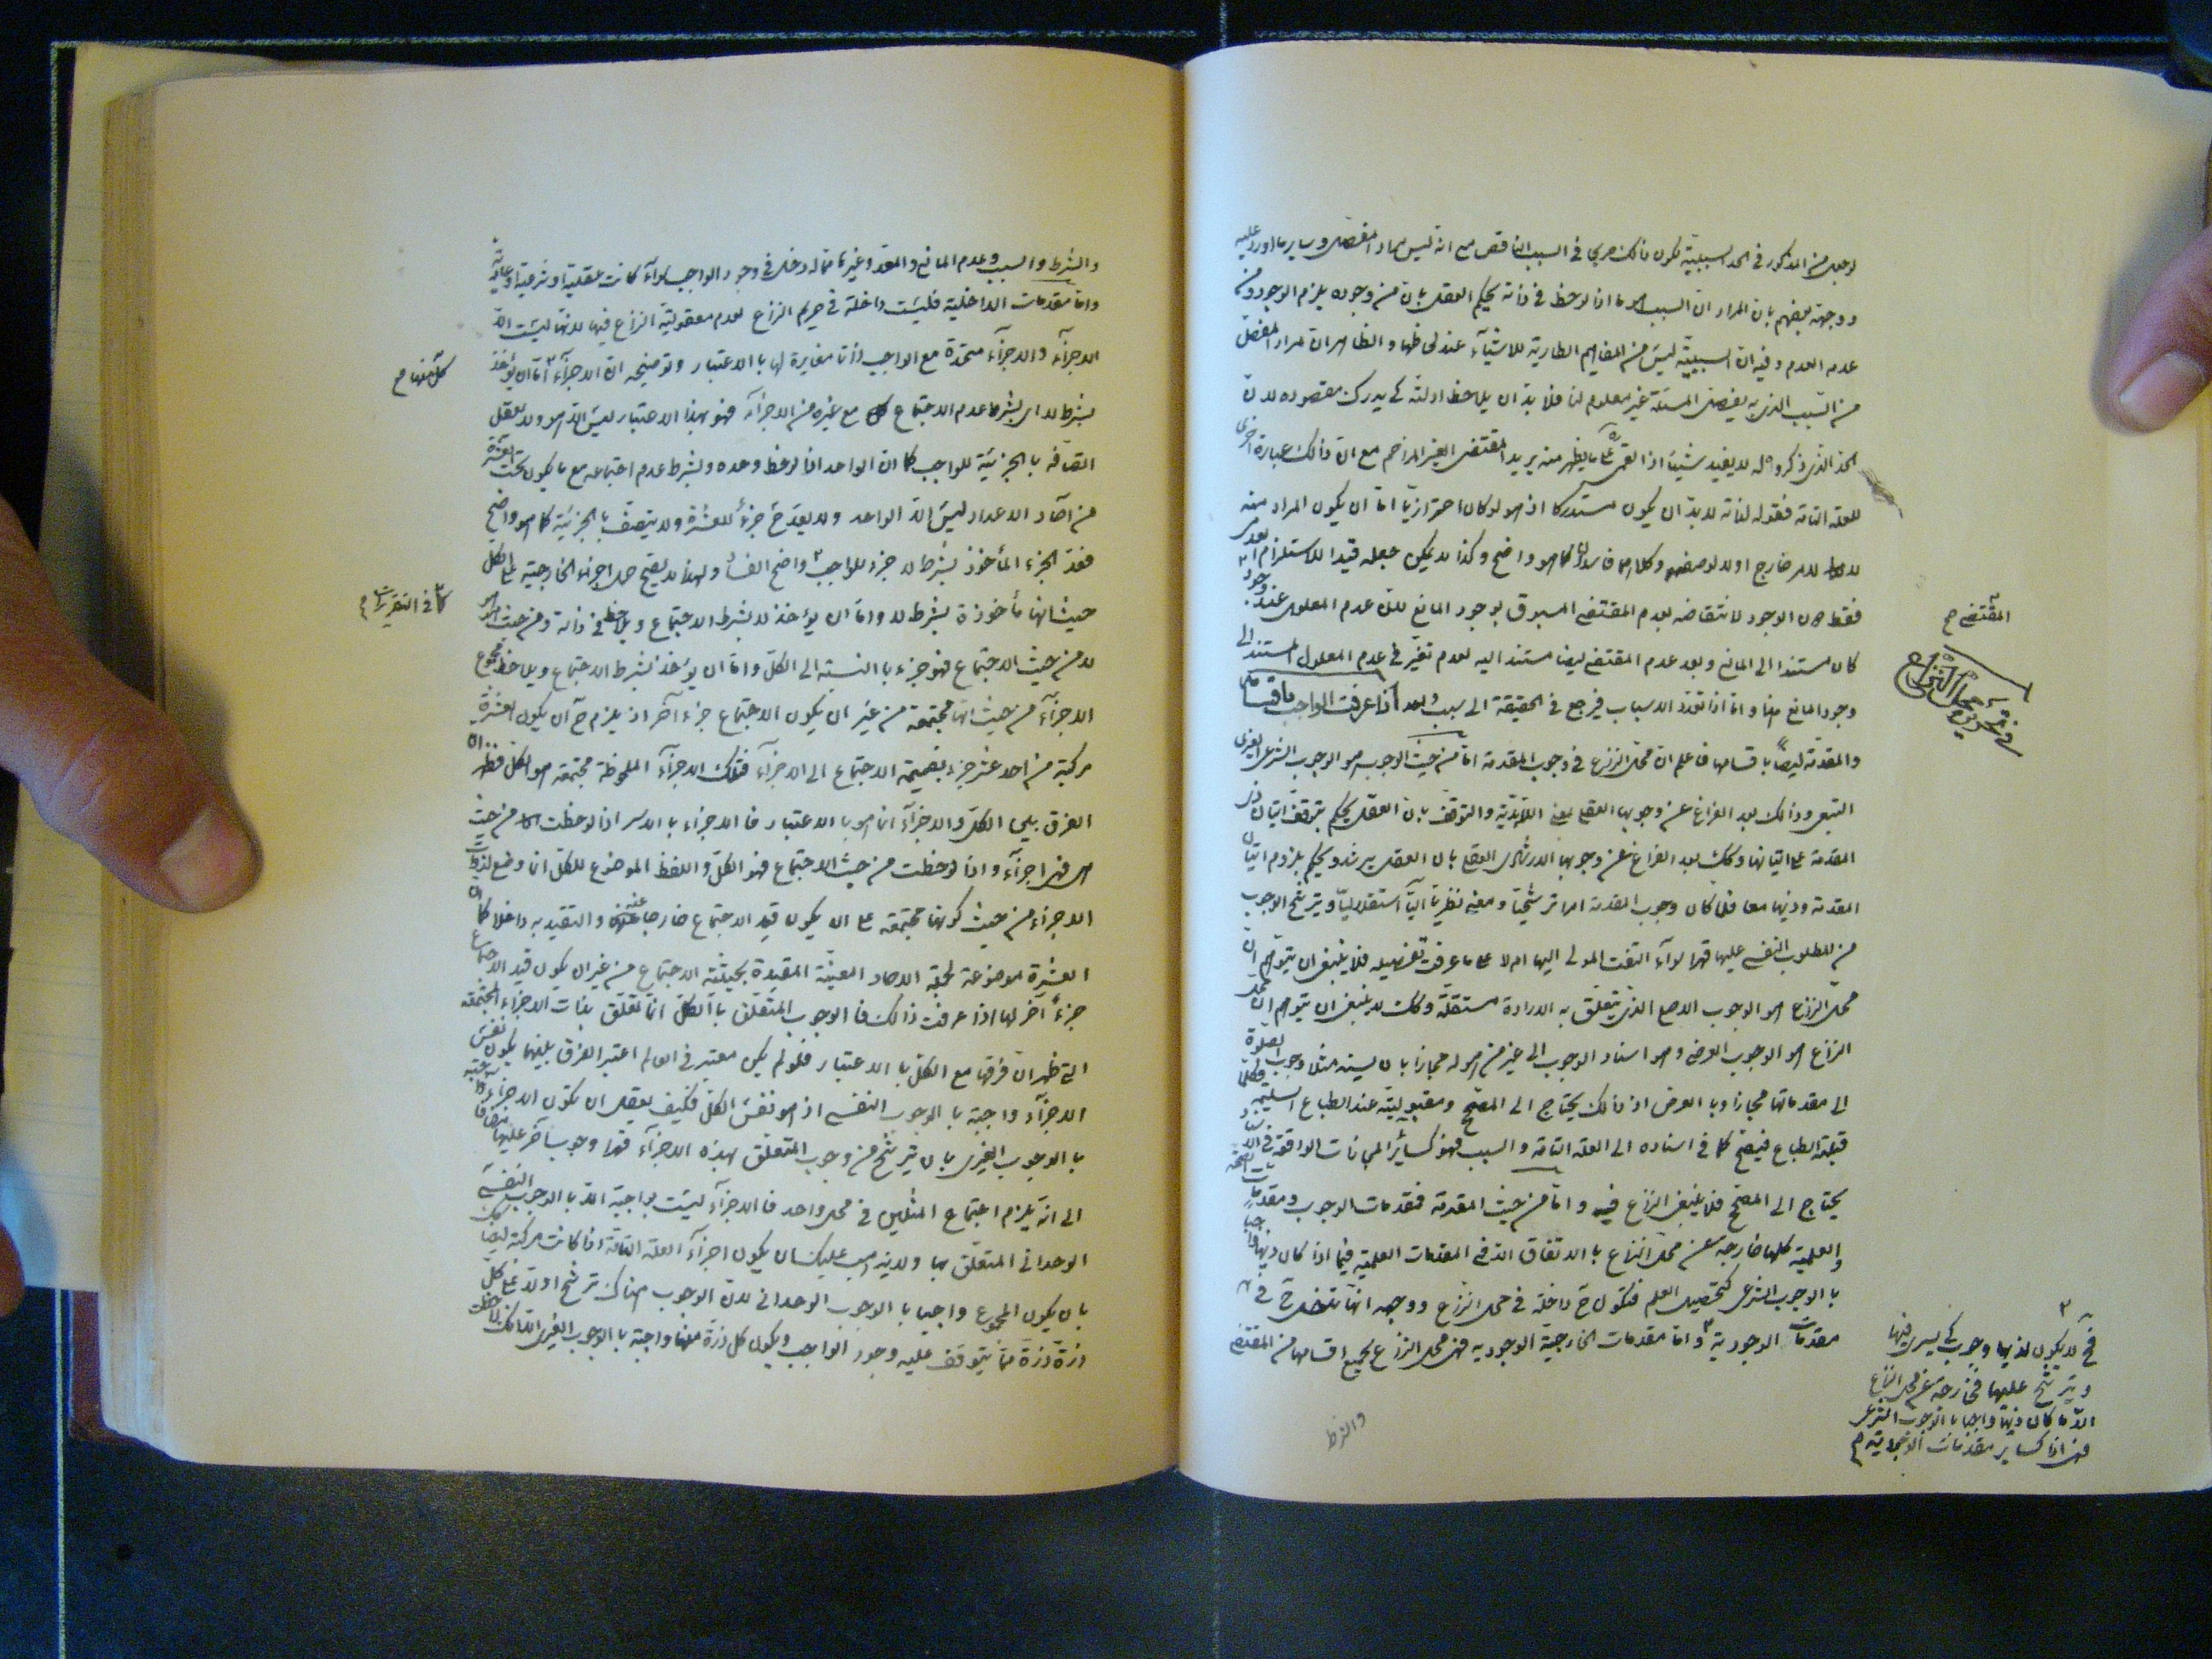 لوجعل من المذكور في الحد السببية يكون ذلك جريا في السبب الناقص مع انه ليس مراد المفصل وساير ما اورد عليه
ووجهه بعضهم بان المراد ان السبب هو ما اذا لوحظ في ذاته يحكم العقل بان من وجوده يلزم الوجود ومن
عدمه العدم وفيه ان السببية ليس من المفاهيم الطارية للاشياء عند لحاظها والظاهر ان مراد المفصل
من السبب الذي به يفصل المسئلة غير معلوم لنا فلا بد ان يلاحظ ادلته كي يدرك مقصوده لان
الحد الذي ذكروه له لا يفيد شيئا اذ القمي ره على ما يظهر منه يريد المقتضى الغير المزاحم مع ان ذلك عبارة اخرى
للعلة التامة فقوله لذاته لا بد ان يكون مستدركا اذ هو لو كان احترازيا اما ان يكون المراد منه
لا لامر خارج او لا لوصفه وكلاهما فاسدان كما هو واضح وكذا لا يمكن جعله قيدا للاستلزام العدمي
فقط دون الوجود لانتقاضه بعدم المقتضى المسبوق بوجود المانع لان عدم المعلول عند وجود
كان مستندا الى المانع وبعد عدم المقتضى ايضا مستند اليه لعدم تغير في عدم المعلول المستند الى
وجود المانع ايضا واما اذا تعدد الاسباب فيرجع في الحقيقة الى سبب واحد اذا عرفت الواجب باقسامه
والمقدمة ايضا باقسامها فاعلم ان محل النزاع في وجوب المقدمة اما من حيث الوجوب هو الوجوب الشرعي الغيري
التبعي وذلك بعد الفراغ عن وجوبها العقلي بمعنى اللابدية والتوقف بان العقل يحكم بتوقف اتيان ذي
المقدمة على اتيانها وكك بعد الفراغ عن وجوبها الارشادي العقلي بان العقل يرشد ويحكم بلزوم اتيان
المقدمة وذيها معا فلما كان وجوب المقدمة امرا ترشحيا ومعنى نظريا آليا استقلاليا ويترشح الوجوب
من المطلوب النفسي عليها قهرا سواء التفت المولى اليها ام لا على ما عرفت تفصيله فلا ينبغي ان يتوهم ان
محل النزاع هو الوجوب الاصلي الذي يتعلق به الارادة مستقلة وكك لا ينبغي ان يتوهم ان محل
النزاع هو الوجوب العرضي وهو اسناد الوجوب الى غير من هو له مجازا بان يسند مثلا وجوب الصلوة
الى مقدماتها مجازا وبالعرض اذ ذلك يحتاج الى المصحح ومقبولية عند الطباع السليمة فكلما
قبلته الطباع فيصح كما في اسناده الى العلة التامة والسبب فهو كسائر المجازات الواقعة في
يحتاج الى المصحح فلا ينبغي النزاع فيه واما من حيث المقدمة فمقدمات الوجوب ومقدمات الصحة
والعلمية كلها خارجة عن محل النزاع بالاتفاق الا في المقدمات العلمية فيما اذا كان ذيها واجبا
بالوجوب الشرعي كتحصيل العلم فتكون ح داخلة في محل النزاع ووجهه انها تدخل ح في
مقدمات الوجودية واما مقدمات الخارجية الوجودية فهي محل النزاع بجميع اقسامها من المقتضى
المقتضى م
في تحرير محل النزاع
فح لا يكون لذيها وجوب كي يسري فيها
ويترشح عليها فخارجة عن محل النزاع
الا ما كان ذيها واجبا بالوجوب الشرعي
فهي اذا كساير مقدمات الوجودية م
والشرط
والشرط والسبب وعدم المانع والمعد وغيرها مما له دخل في وجود الواجب سواء كانت عقلية او شرعية او عادية
واما مقدمات الداخلية فليست داخلة في حريم النزاع لعدم معقولية النزاع فيها لانها ليست الا
الاجزاء والاجزاء متحدة مع الواجب ذاتا مغايرة لها بالاعتبار وتوضيحه ان الاجزاء اما ان يؤخذ
بشرط لا اي بشرط عدم الاجتماع مع غيره من الاجزاء فهو بهذا الاعتبار ليس الا هو ولا يعقل
اتصافه بالجزئية للواجب كما ان الواحد اذا لوحظ وحده وبشرط عدم اجتماعه مع ما يكون تحت العشرة
من آحاد الاعداد ليس الا الواحد ولا يعد ح جزء للعشرة ولا يتصف بالجزئية كما هو واضح
فعد الجزء المأخوذ بشرط لا جزء للواجب واضح الفساد ولهذا لا يصح حمل اجزاء الخارجية على الكل
حيث انها مأخوذة بشرط لا واما ان يؤخذ لا بشرط الاجتماع ويلاحظ في ذاته ومن حيث هو هو
لا من حيث الاجتماع فهو جزء بالنسبة الى الكل واما ان يؤخذ بشرط الاجتماع ويلاحظ مجموع
الاجزاء من حيث انها مجتمعة من غير ان يكون الاجتماع جزء آخر اذ يلزم ح ان يكون العشرة
مركبة من احد عشر جزء بضميمة الاجتماع الى الاجزاء فتلك الاجزاء الملحوظة مجتمعة هو الكل فظهر ان
الفرق بين الكل والاجزاء انما هو بالاعتبار فالاجزاء بالاسر اذا لوحظت من حيث
هي فهي اجزاء واذا لوحظت من حيث الاجتماع فهو الكل واللفظ الموضوع للكل انما وضع لذوات
الاجزاء من حيث كونها مجتمعة على ان يكون قيد الاجتماع خارجا عنه والتقيد به داخلا كما ان
العشرة موضوعة لجملة الاحاد المعينة المقيدة بحيثية الاجتماع من غير ان يكون قيد الاجتماع
جزء آخر لها اذا عرفت ذلك فالوجوب المتعلق بالكل انما تعلق بذات الاجزاء المجتمعة
التي ظهر ان فرقها مع الكل بالاعتبار فلو لم يكن معتبر في العالم اعتبر الفرق بينهما يكون نفس
الاجزاء واجبة بالوجوب النفسي اذ هو نفس الكل فكيف يعقل ان تكون الاجزاء واجبة
بالوجوب الغيري بان يترشح من وجوب المتعلق بهذه الاجزاء قهرا وجوبا آخر عليها مضافا
الى انه يلزم اجتماع المثلين في محل واحد فالاجزاء ليست بواجبة الا بالوجوب النفسي
الوحداني المتعلق بها ولا يذهب عليك ان يكون اجزاء العلة التامة اذا كانت مركبة ايضا كك
بان يكون المجموع واجبا بالوجوب الوحداني لان الوجوب هناك ترشح اولا على كل
ذرة ذرة مما يتوقف عليه وجود الواجب ويكون كل ذرة منها واجبة بالوجوب الغيري
كل منها م
كما في التقريرات م